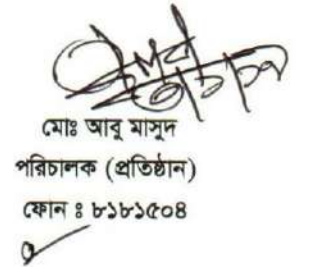 মোঃ আবু মাসুদ
পরিচালক (প্রতিষ্ঠান)
ফোন ঃ ৮১৮১৫০৪